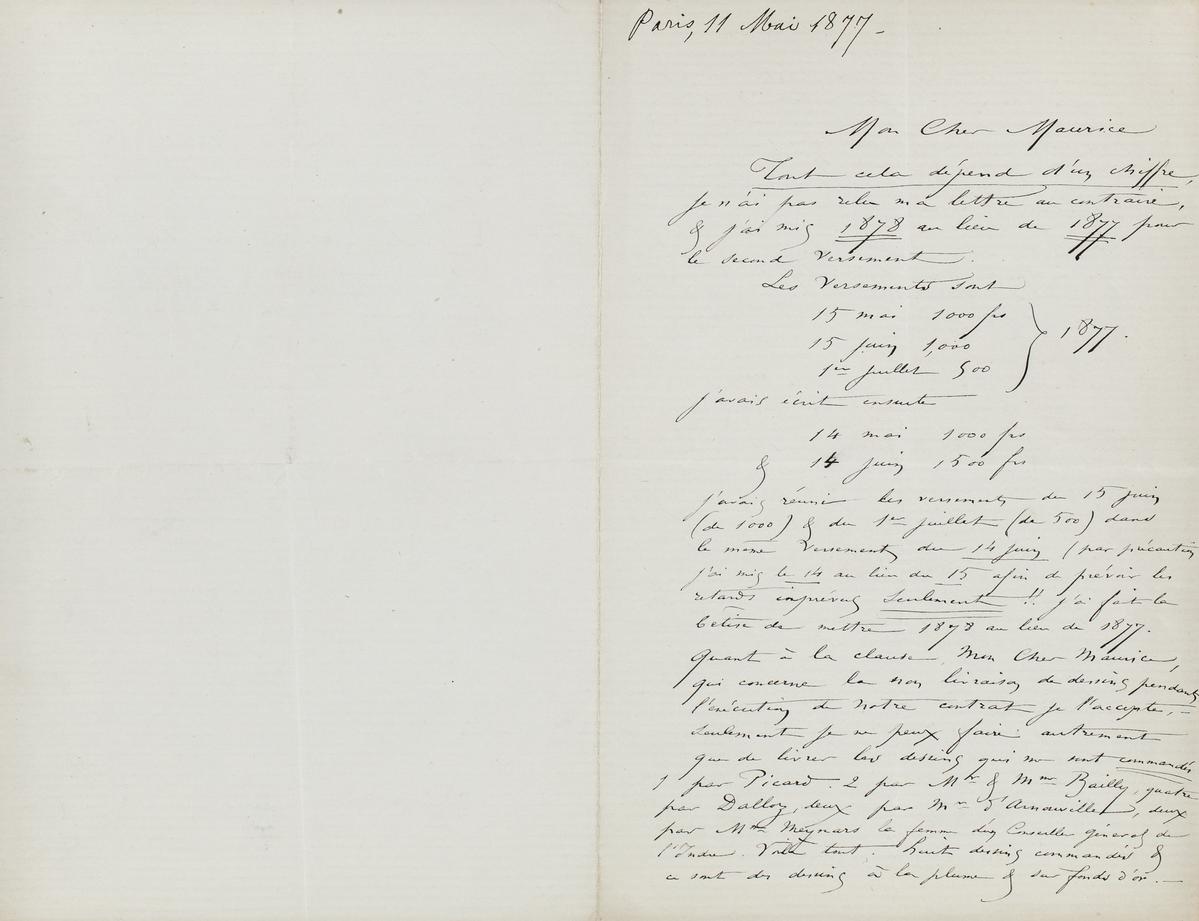 Paris, 11 Mai 1877_
Mon Cher Maurice
Tout cela dépend d'un chiffre,
je n'ai pas relu ma lettre au contraire,
& j'ai mis 1878 au lieu de 1877 pour
le second versement.
Les Versements sont
15 mai 1000 frs
15 juin 1,000
1er juillet 500
} 1877.
j'avais écrit ensuite
14 mai 1000 frs
& 14 juin 1500 frs
j'avais réuni les versements du 15 juin
(de 1000) & du 1er juillet (de 500) dans
le même Versement du 14 juin (par précaution
j'ai mis le 14 au lieu du 15 afin de prévoir les
retards imprévus seulement !! j'ai fait la
bêtise de mettre 1878 au lieu de 1877.
Quant à la clause, Mon Cher Maurice,
qui concerne la non livraison de dessins pendant
l'exécution de notre contrat je l'accepte, _
seulement je ne peux faire autrement
que de livrer les dessins qui me sont commandés
1 par Picard. 2 par Mr & Mme Bailly, quatre
par Dalloz, deux par Mr d'Arnouville, deux
par Mme Meynars la femme d'un Conseiller général de
l'Indre. Voilà tout. huit dessins commandés &
ce sont des dessins à la plume & sur fonds d'or. _